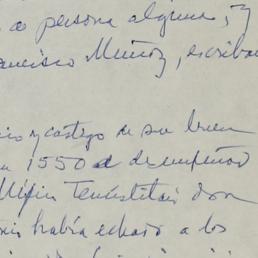 a persona alguna, y
ancisco Muñoz, escriba
y castigo de su buen
1550 d desempeñad
Tenustitan don
había echado a los